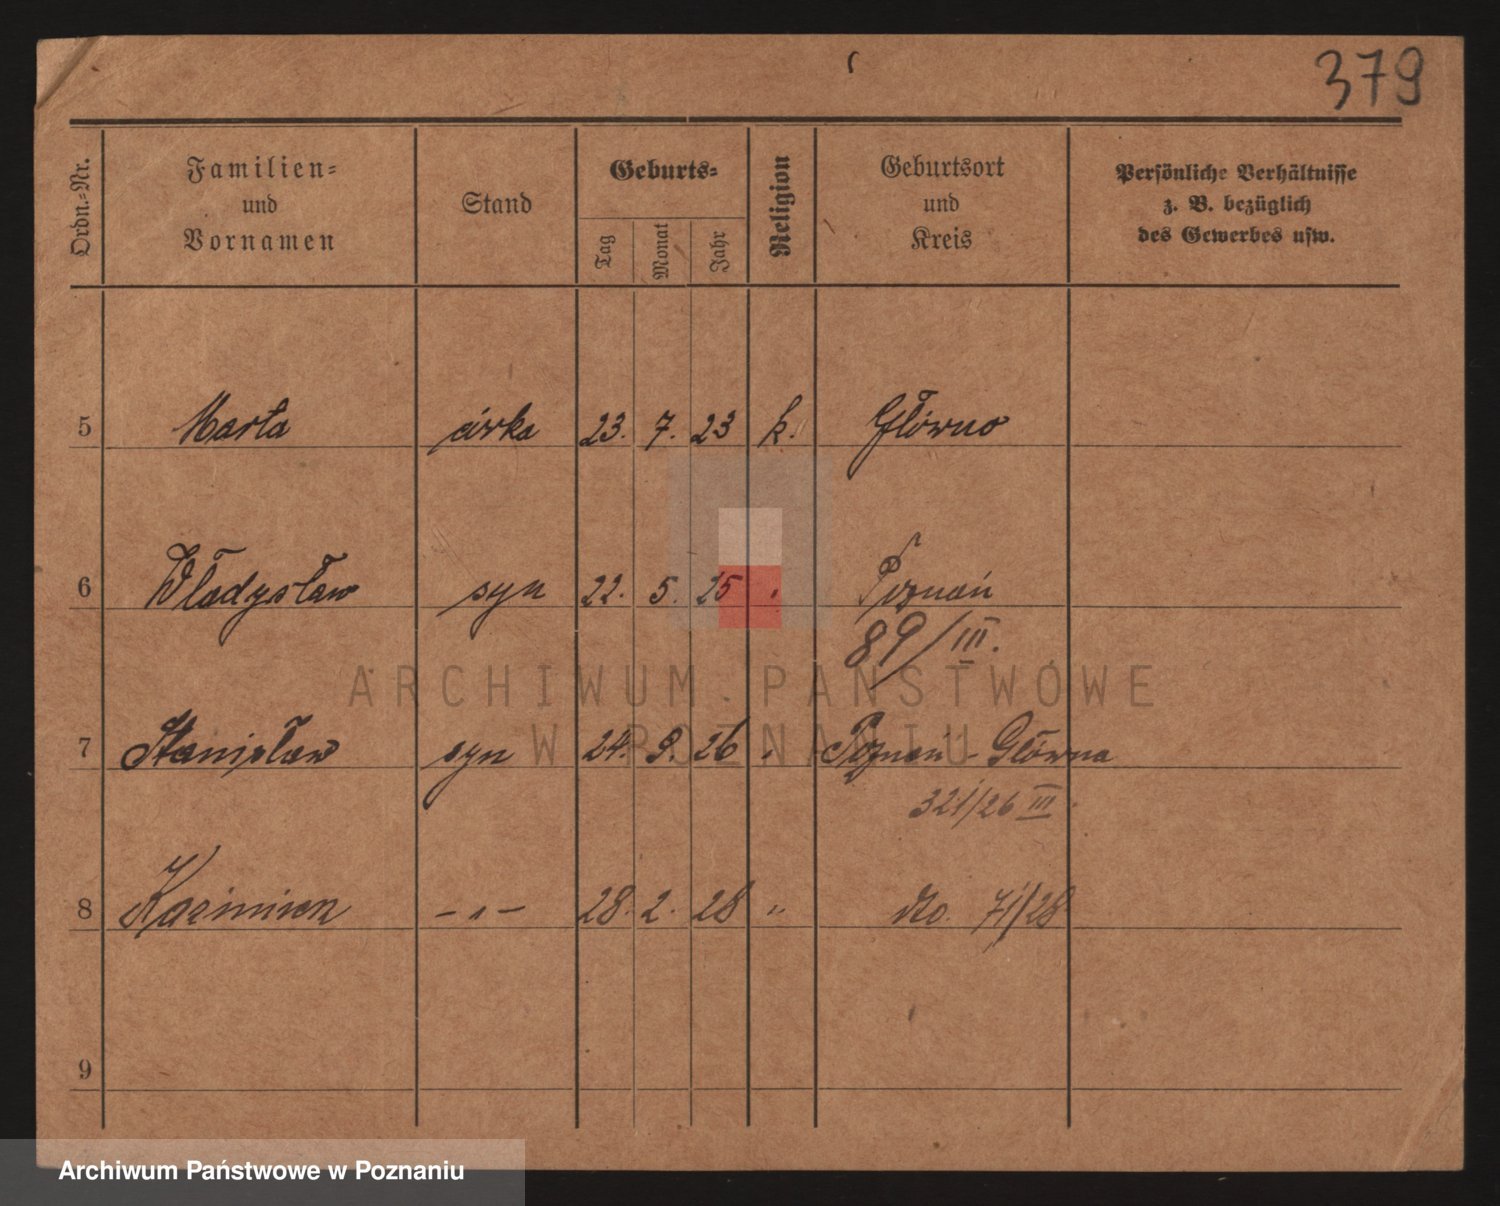 379
Ordn.-Nr.
Familien-
und
Vornamen
Stand
Geburts-
Tag
Monat
Jahr
Religion
Geburtsort
und
Kreis
Persönliche Verhältnisse
z. B. bezüglich
des Gewerbes usw.
5 Marta córka 23. 7. 23 k. Główno
6 Władysław syn 22. 5. 25 " Poznań
89/III.
7 Stanisław syn 24. 9. 26 " Poznań-Główna
321/26 III
8 Kazimierz -"- 28. 2. 28 " No. 71/28
9
ARCHIWUM PAŃSTWOWE
W POZNANIU
Archiwum Państwowe w Poznaniu